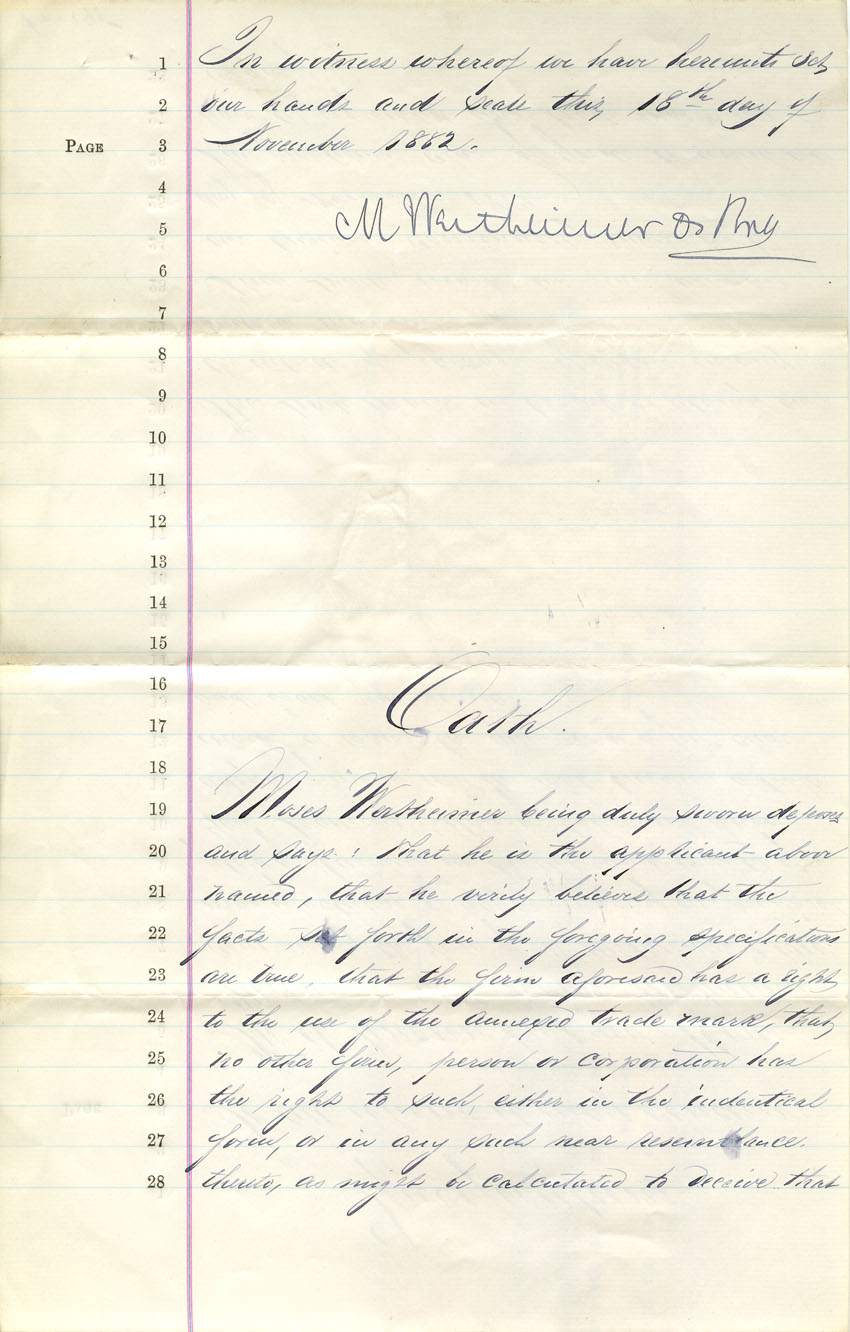 1 In witness whereof we have hereunto set
2 our hands and seals this 18th day of
PAGE 3 November 1882.
4
5 M Wertheimer &
6
7
8
9
10
11
12
13
14
15
16
17 Oath.
18
19 Moses Wertheimer being duly sworn deposes
20 and says: that he is the applicant above
21 named, that he verily believes that the
22 facts set forth in the foregoing specifications
23 are true, that the firm aforesaid has a right
24 to the use of the annexed trade mark, that
25 no other firm, person or corporation has
26 the right to such, either in the indentical
27 form, or in any such near resemblance.
28 thereto, as might be calculated to deceive that